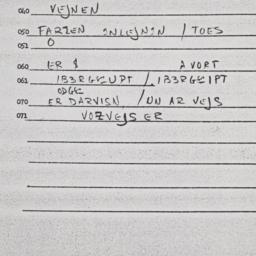 040 VEJNEN
050 FARZEN INLEJNIN / TOES
051 O
060 ER $ A VORT
061 IBBRGEUPT / IBBRGEIPT
ODGE
070 ER DARVISN, / UN AR VEJS
071 VOZVEJS ER